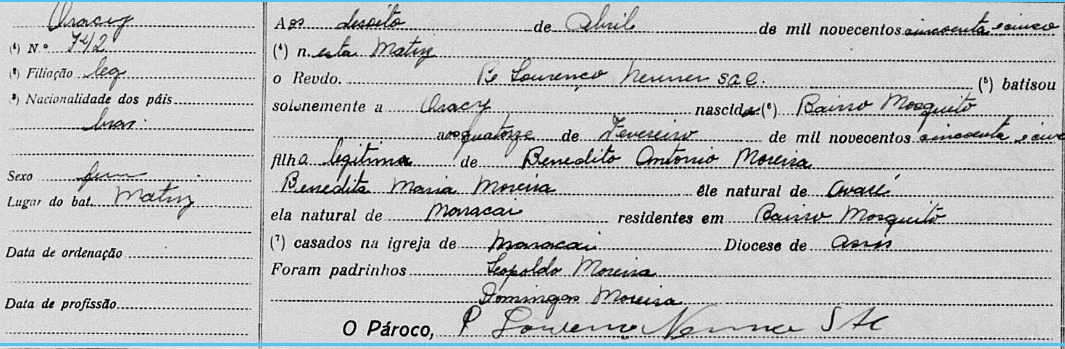 Aracy
(¹) N.º 742
(²) Filiação leg
(³) Nacionalidade dos páis
bras.
Sexo fem
Lugar do bat. Matriz
Data de ordenação
Data de profissão
Aos dezoito de Abril de mil novecentos cincoenta e cinco
(⁴) nesta Matriz
o Revdo. Pe Lourenço Nenner sac. (⁵) batisou
solenemente a Aracy nascida (⁶) Bairro Mosquito
aos quatorze de Fevereiro de mil novecentos cincoenta e cinco
filha legitima de Benedito Antonio Moreira
Benedita Maria Moreira êle natural de Avaré
ela natural de Maracai residentes em Bairro Mosquito
(⁷) casados na igreja de Maracai Diocese de Assis
Foram padrinhos Leopoldo Moreira
Domingas Moreira
O Pároco, P Lourenço Nenner SAC